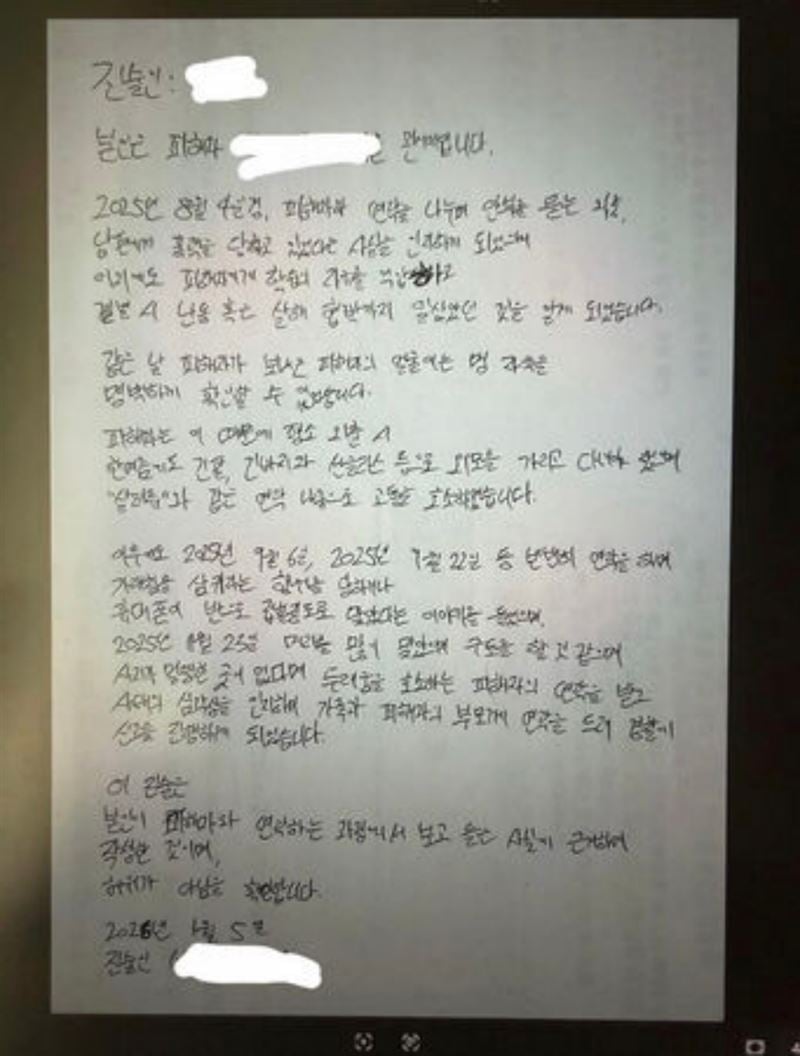 진술인:
본인은 피해자 관계입니다.
2025년 8월 4일경, 피해자와 연락을 나누며 안부를 묻는 과정,
남편에게 폭력을 당하고 있었다는 사실을 인지하게 되었으며
이외에도 피해자에게
결별 시 난동 혹은 살해 협박까지 일삼았던 것을 알게 되었습니다.
같은 날 피해자가 보내온 피해자의 얼굴에는 멍 자국을
명백하게 확인할 수 있었습니다.
피해자는 이 때문에 평소 외출 시
한여름에도 긴팔, 긴바지와 선글라스 등으로 외모를 가리고 다녀야 했으며
"살려줘"와 같은 연락 내용으로 고통을 호소하였습니다.
이후에도 2025년 9월 6일, 2025년 9월 22일 등 연락을 하며
삼키라는 당하거나
휴대폰이 반으로 맞았다는 이야기를 들었으며,
2025년 25일 많이 맞았으며 구토를 할 것 같으며
멀쩡한 곳이 없다며 두려움을 호소하는 피해자의 연락을 받고
사태의 심각성을 인지하여 가족과 피해자의 부모께 연락을 드려 경찰에
신고를 진행하게 되었습니다.
이 진술은
본인이 피해자와 연락하는 과정에서 보고 들은 사실에 근거하여
작성한 것이며,
허위가 아님을 확인합니다.
2026년 1월 5일
진술인 (